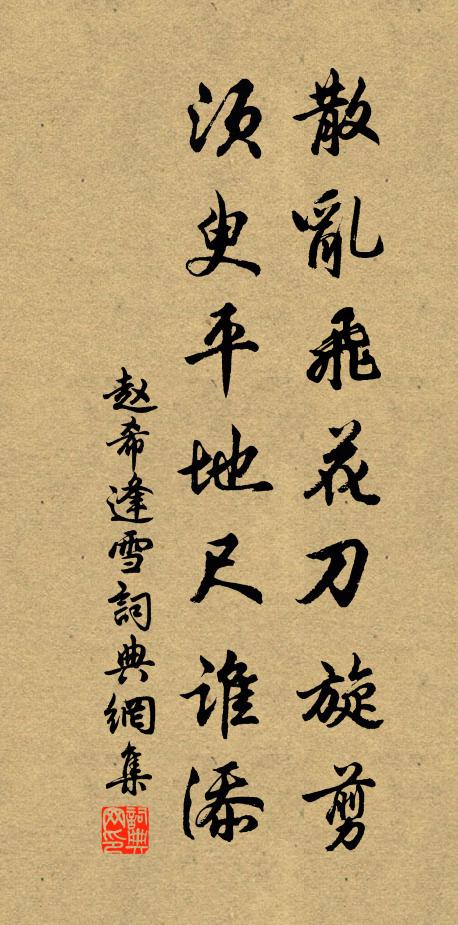 散亂飛花刀旋剪
須臾平地尺誰添
趙希逢雪詞典網集
詞典網印